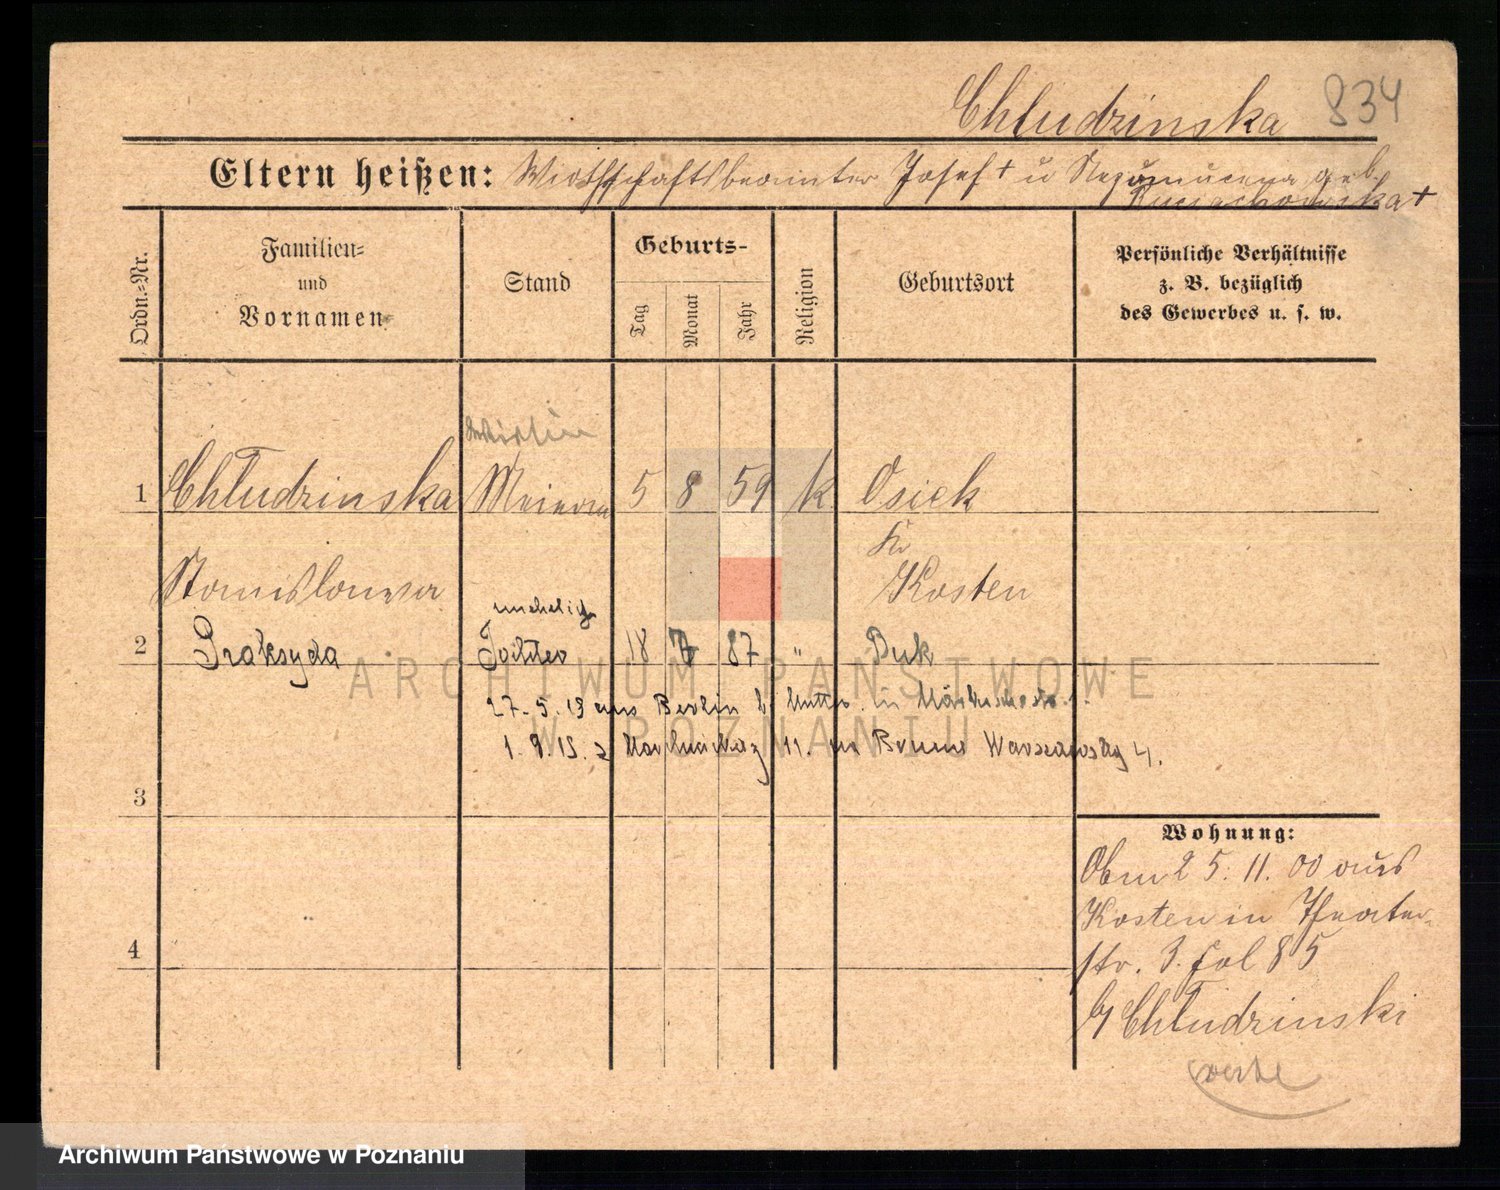 Chludzinska 834
Eltern heißen: Wirthschaftsbeamter Josef + u Nepomucena geb.
+
Ordn.-Nr.
Familien-
und
Vornamen
Stand
Geburts-
Tag
Monat
Jahr
Religion
Geburtsort
Persönliche Verhältnisse
z. B. bezüglich
des Gewerbes u. s. w.
Wirtin
1 Chłudzinska 5 8 59 k Osiek
Kr
Stanislawa Kosten
unehelich
2 Praksyda Tochter 18 7 87 " Buk
27. 5. 13 aus Berlin b. Mutter in
1. 9. 15. z 11. Warszawsky 4.
3
4
Wohnung:
Oben 25. 11. 00 aus
Kosten in Theater-
str. 3. fol 85
by Chłudzinski
verte
ARCHIWUM PAŃSTWOWE
W POZNANIU
Archiwum Państwowe w Poznaniu